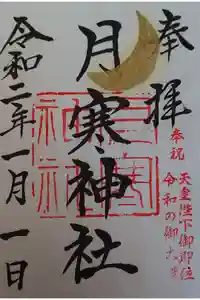 奉拝
奉祝
天皇陛下御即位
令和の御大典
月寒神社
令和二年一月一日